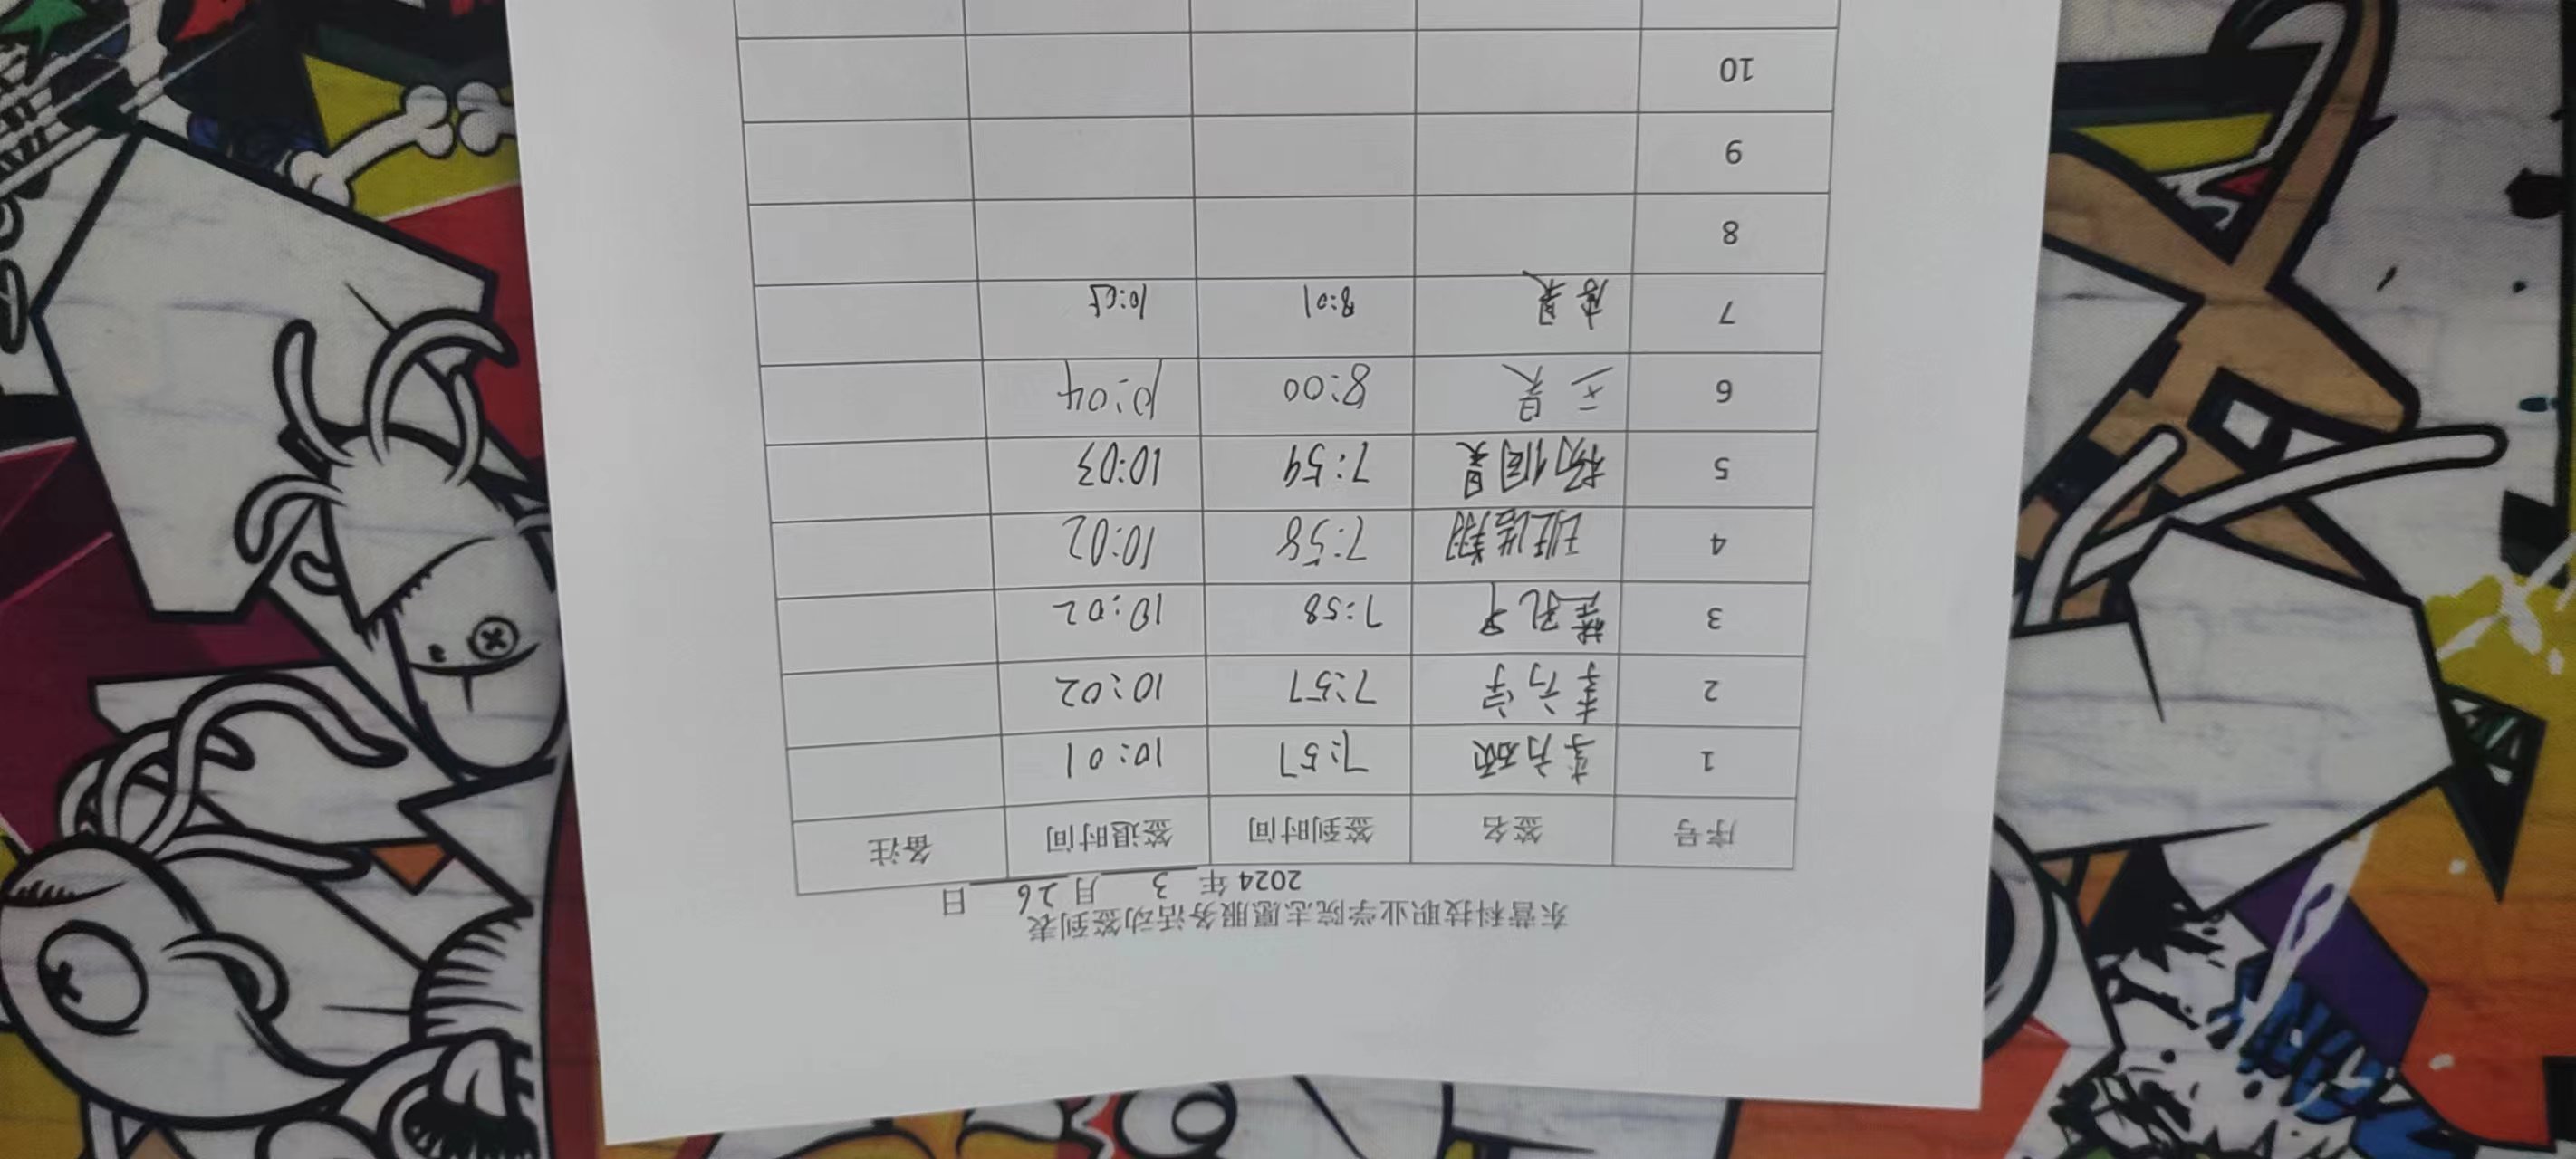 东营科技职业学院志愿服务活动签到表
2024 年 3 月 26 日
序号 签名 签到时间 签退时间 备注
1 李方硕 7:57 10:01
2 李方宇 7:57 10:02
3 7:58 10:02
4 班浩翔 7:58 10:02
5 杨佩昊 7:59 10:03
6 王昊 8:00 10:04
7 唐昊 8:01 10:05
8
9
10